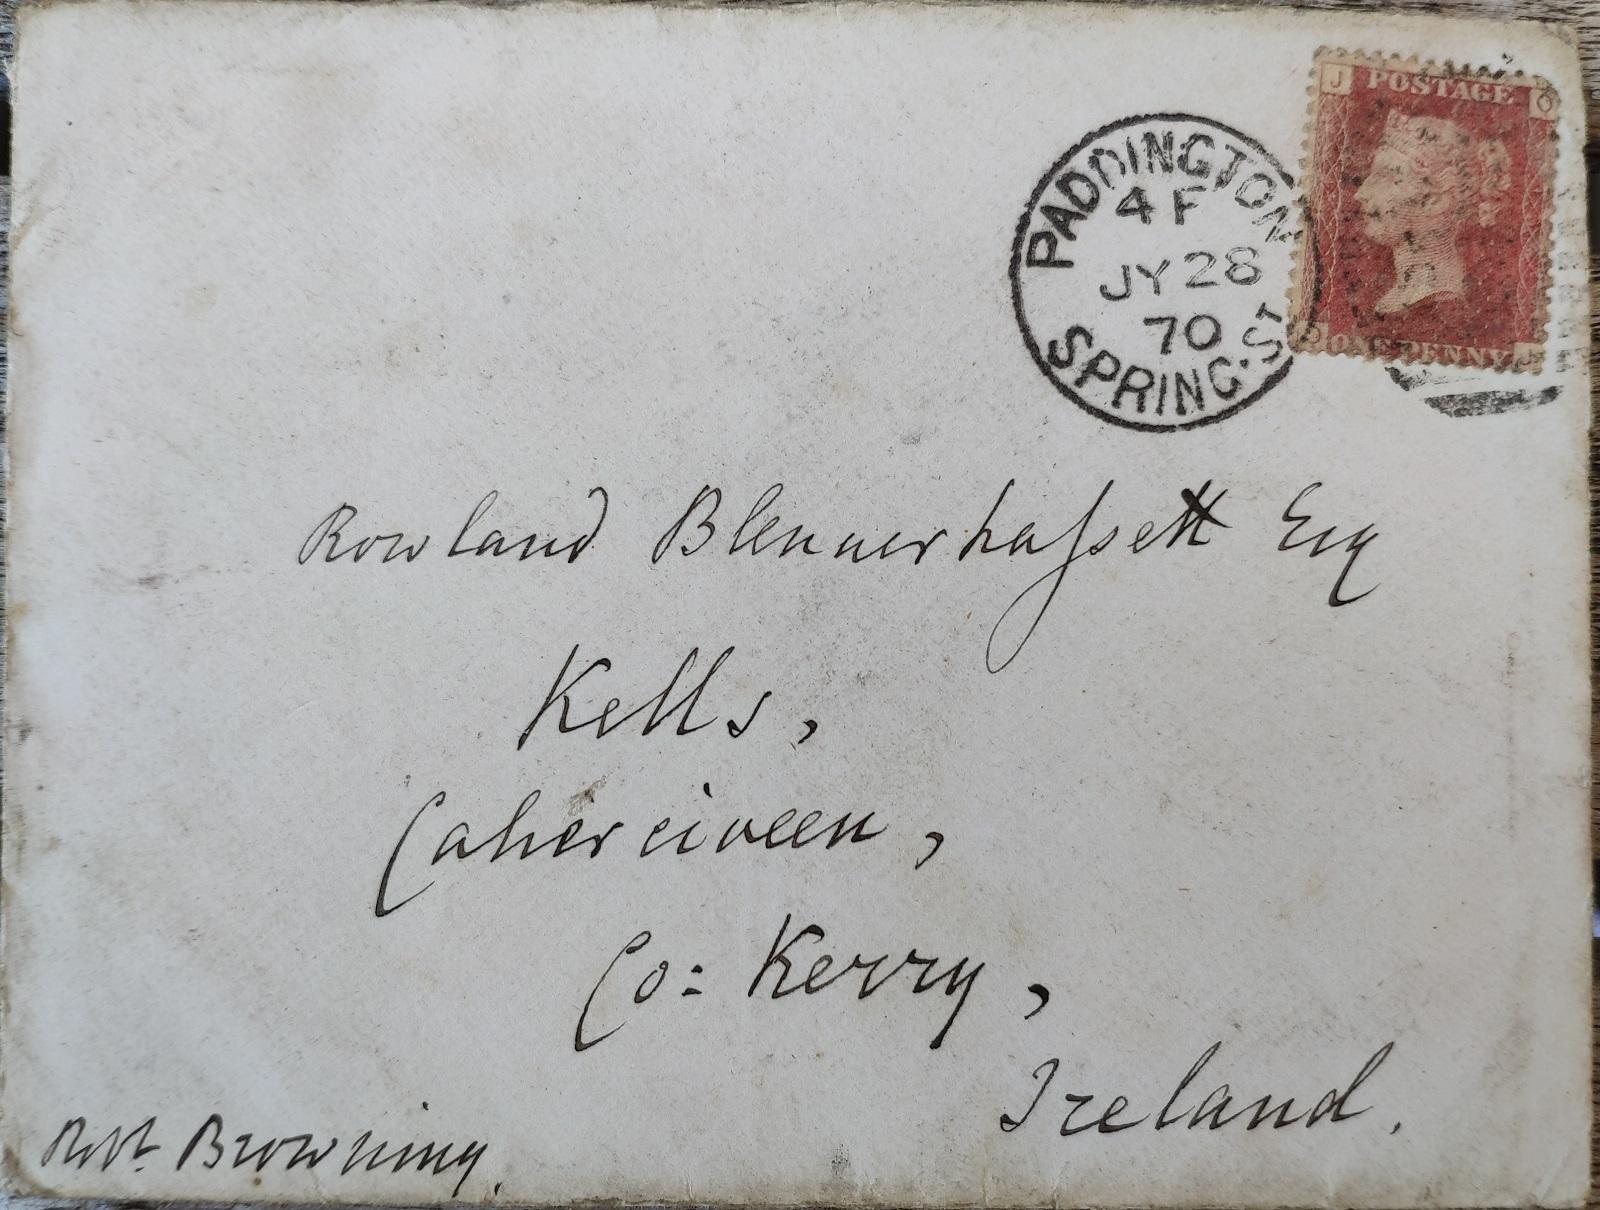 J POSTAGE O
PADDINGTON
4 F
JY 28
70
SPRING. ST
O ONE PENNY J
Rowland Blennerhassett Esq
Kells,
Caherciveen,
Co: Kerry,
Ireland.
Robt. Browning.